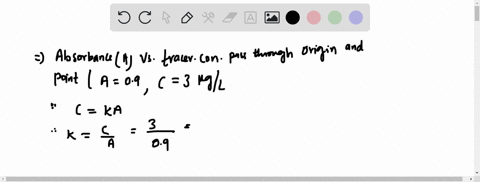 =) Absorbance (A) Vs. tracer. con. pass through origin and
point ( A = 0.9 , C = 3 μg/L
∵ C = KA
∴ K = C/A = 3/0.9 =